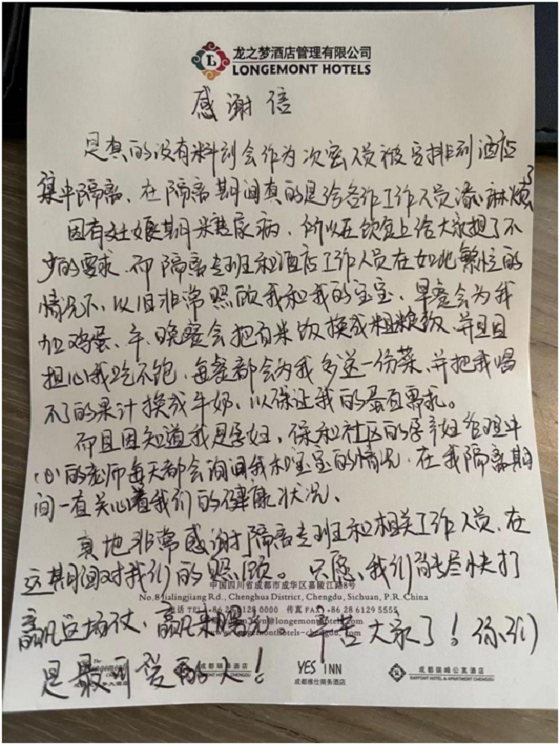 龙之梦酒店管理有限公司
LONGEMONT HOTELS
感谢信
是真的没有料到会作为次密人员被安排到酒店
集中隔离、在隔离期间真的是给各位工作人员添麻烦了
因有妊娠期糖尿病,所以在饮食上给大家提了不
少的要求、而隔离专班和酒店工作人员在如此繁忙的
情况下、以旧非常照顾我和我的宝宝、早餐会为我
加鸡蛋、午、晚餐会把白米饭换成粗粮饭、并且因
担心我吃不饱、每餐都会为我多送一份菜、并把我喝
不了的果汁换成牛奶、以保证我的蛋白需求。
而且因知道我是孕妇、保和社区的孕产妇管理中
心的老师每天都会询问我和宝宝的情况、在我隔离期
间一直关心着我们的健康状况、
真地非常感谢隔离专班和相关工作人员、在
这期间对我们的照顾、只愿、我们能尽快打
中国四川省成都市成华区嘉陵江路8号
No.8 Jialingjiang Rd., Chengdu, Sichuan, P.R. China
总话 TEL +86 28 6129 0000 传真 FAX +86 28 6129 5555
赢这场仗、 辛苦大家了!你们
是最可爱的人!
YES INN
成都维仕商务酒店
成都瑞峰公寓酒店